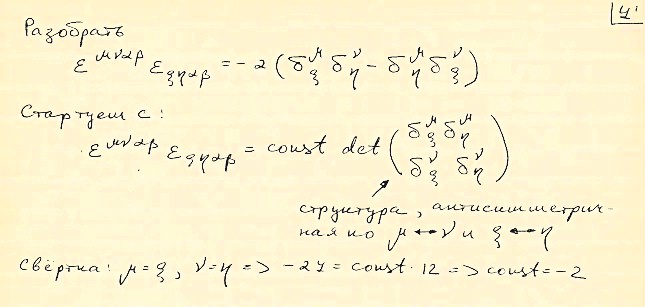 4'
Разобрать
ε^{μναβ} ε_{ξηαβ} = -2 (δ^μ_ξ δ^ν_η - δ^μ_η δ^ν_ξ)
Стартуем с:
ε^{μναβ} ε_{ξηαβ} = const det (δ^μ_ξ δ^μ_η
δ^ν_ξ δ^ν_η)
структура, антисимметрич-
ная по μ↔ν и ξ↔η
Свёртка: μ=ξ, ν=η => -24 = const · 12 => const = -2